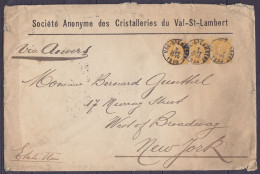 Société Anonyme des Cristalleries du Val-St-Lambert
Via Anvers
Monsieur Bernard
17 Murray Street
West of Broadway
New York
Etats Unis